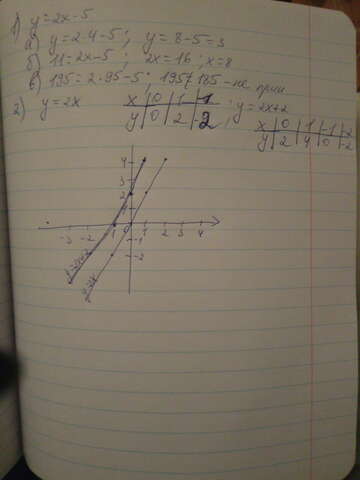 1) y=2x-5
а) y=2·4-5; y=8-5=3
б) 11=2x-5; 2x=16; x=8
в) 195=2·95-5; 195≠185-не прин
2) y=2x x 0 1 -1 ; y=2x+2
y 0 2 -2
x 0 1 -1 -2
y 2 4 0 -2
4
3
2
1
-3 -2 -1 0 1 2 3 4
-1
-2
y=2x+2
y=2x